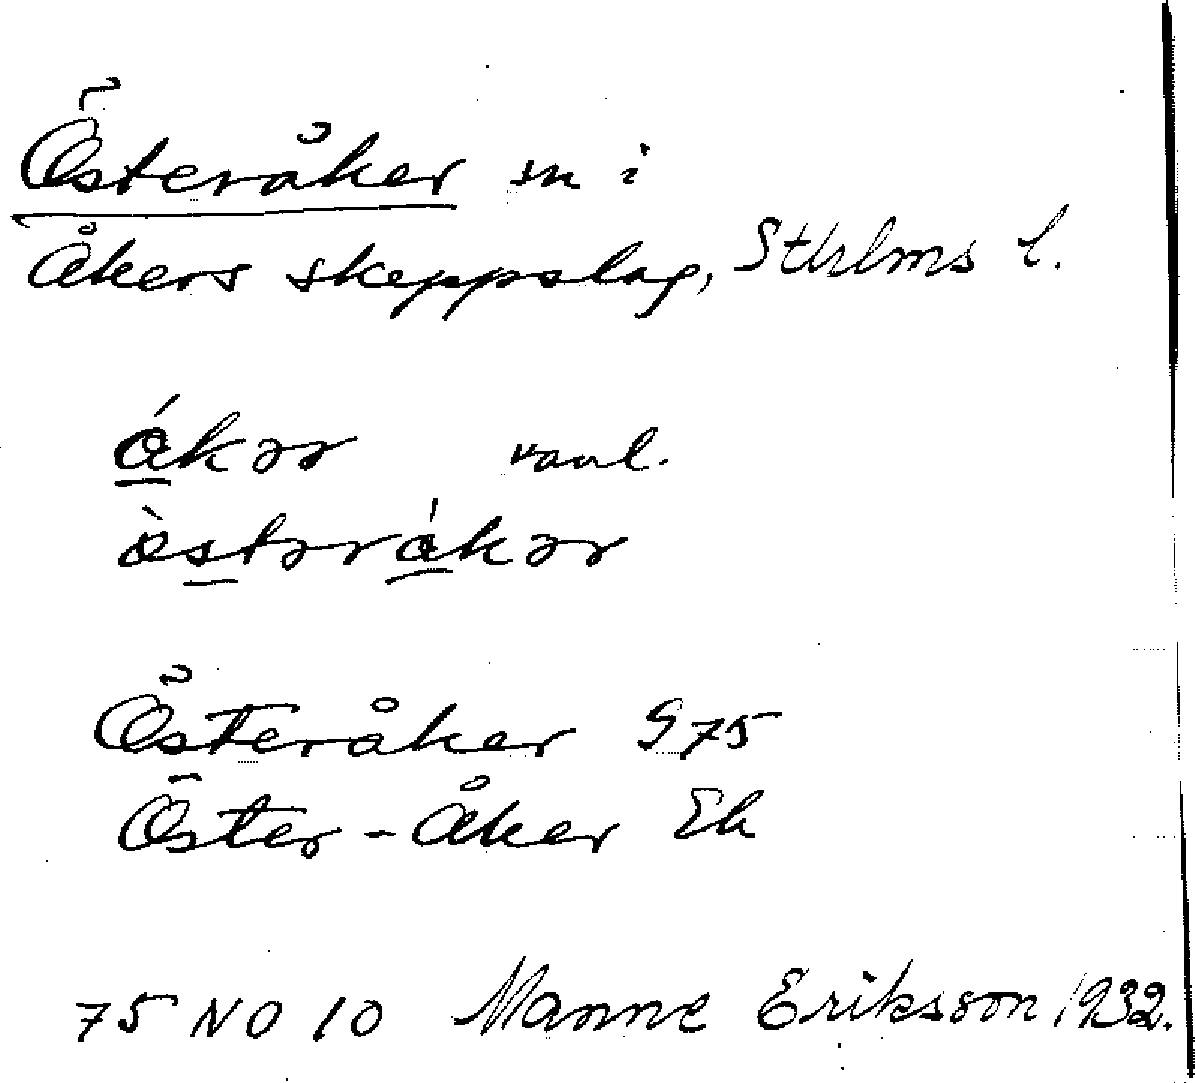 Österåker sn i
Åkers skeppslag, Sthlms l.
åkər vanl.
östəråkər
Österåker G75
Öster-Åker Ek
75 NO 10 Manne Eriksson 1932.